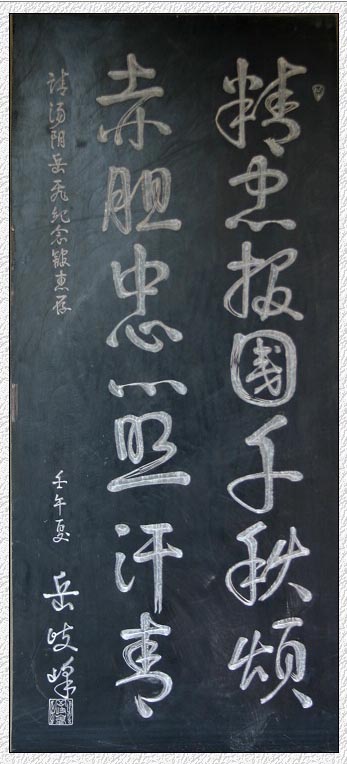 精忠报国千秋颂
赤胆忠心照汗青
请汤阴岳飞纪念馆惠存
壬午夏
岳岐峰